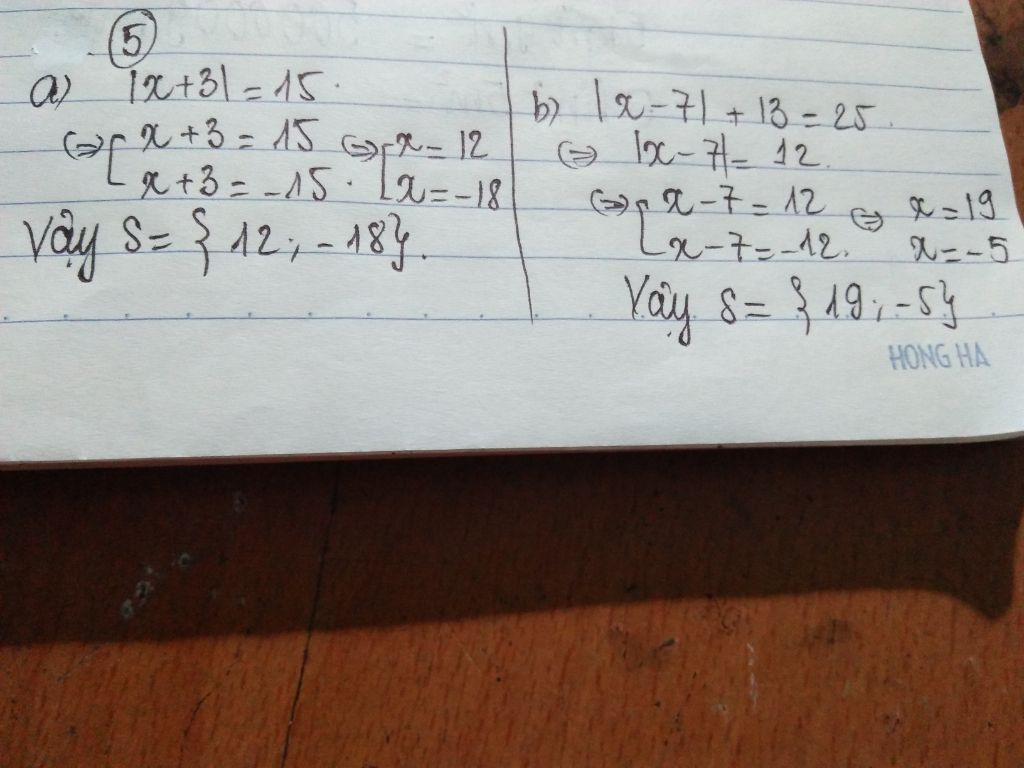 5
a) |x+3| = 15.
⇔ [ x+3 = 15 ⇔ [ x = 12
x+3 = -15. x = -18
Vậy S = { 12; -18}.
b) |x-7| + 13 = 25.
⇔ |x-7| = 12.
⇔ [ x-7 = 12 ⇔ x = 19
x-7 = -12. x = -5
Vậy S = { 19; -5}
HONG HA